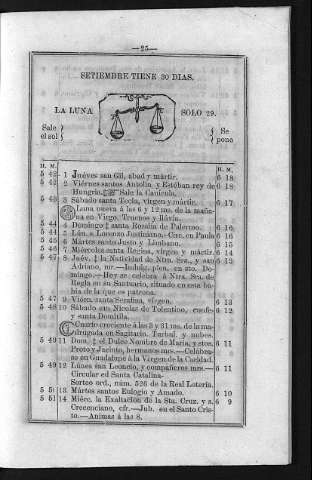 —25—
SETIEMBRE TIENE 30 DIAS.
LA LUNA SOLO 29.
Sale el sol Se pone
H. M. H. M.
5 42 1 Juéves san Gil, abad y mártir. 6 18
5 43 2 Viérnes santos Antolin, y Estéban rey de 6 18
Hungría. Sale la Canícula.
5 43 3 Sábado santa Tecla, vírgen y mártir. 6 17
Luna nueva á las 6 y 12 ms. de la maña-
na en Virgo. Truenos y lluvia.
5 44 4 Domingo santa Rosalía de Palermo. 6 16
5 44 5 Lún. s. Lorenzo Justiniano.—Circ. en Paula 6 16
5 45 6 Mártes santo Justo y 6 15
5 46 7 Miércoles santa Regina, vírgen y mártir 6 14
5 47 8 Juév. la Natividad de Ntra. Sra., y san 6 13
Adriano, mr.—Indulg. plen. en sto. Do-
mingo.—Hoy se celebra á Ntra. Sra. de
Regla en su Santuario, situado en esta ba-
hía de la que es patrona.
5 47 9 Viérn. santa Serafina, vírgen. 6 13
5 48 10 Sábado san Nicolas de Tolentino, confr. 6 12
y santa
Cuarto creciente á las 3 y 31 ms. de la ma-
drugada en Sagitario. Turbal. y nubes.
5 49 11 Dom. el Dulce Nombre de María, y stos. 6 11
Proto y Jacinto, hermanos mrs.—Celébra-
se en Guadalupe á la Vírgen de la Caridad.
5 49 12 Lúnes san Leoncio, y compañeros mrs.— 6 11
Circular ed Santa Catalina.
Sorteo ord., núm. 526 de la Real Lotería.
5 50 13 Mártes santos Eulogio y Amado. 6 10
5 51 14 Miérc. la Exaltacion de la Sta. Cruz. y s. 6 9
Crecenciano, cfr.—Jub. en el Santo Cris-
to.—Animas á las 8.